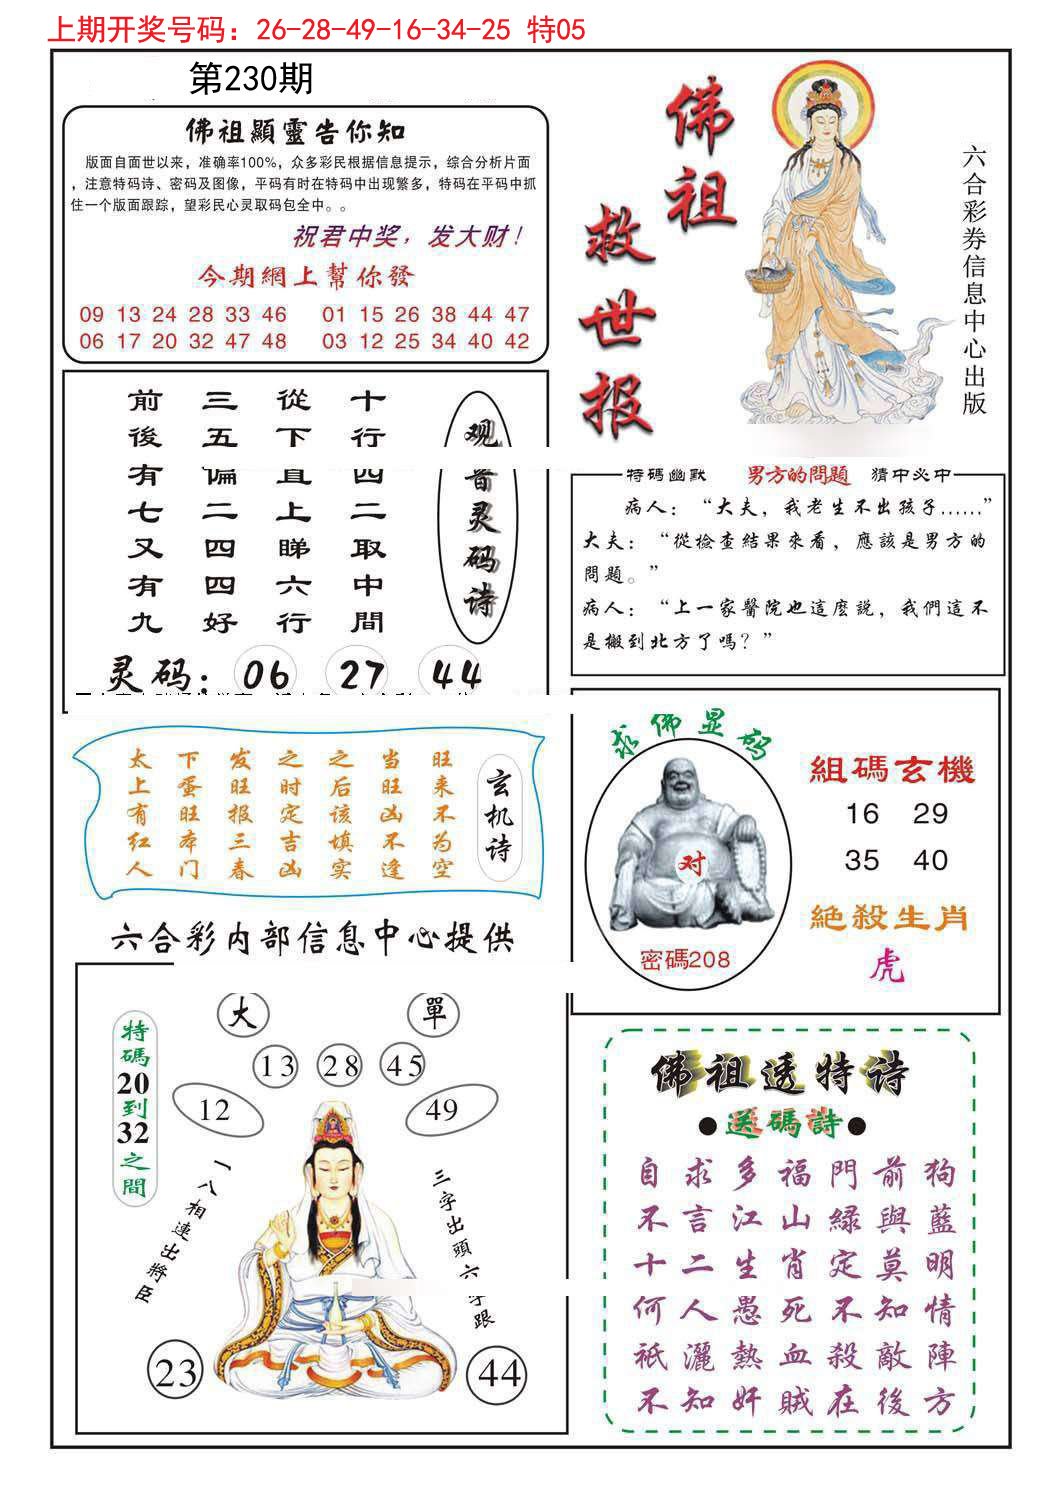 上期开奖号码：26-28-49-16-34-25 特05
第230期
佛祖顯靈告你知
版面自面世以来，准确率100%，众多彩民根据信息提示，综合分析片面
，注意特码诗、密码及图像，平码有时在特码中出现繁多，特码在平码中抓
住一个版面跟踪，望彩民心灵取码包全中。。
祝君中奖，发大财！
今期網上幫你發
09 13 24 28 33 46 01 15 26 38 44 47
06 17 20 32 47 48 03 12 25 34 40 42
佛祖
救世报
六合彩券信息中心出版
前後有七又有九
三五偏二四四好
從下直上睇六行
十行四二取中間
观音灵码诗
灵码：06 27 44
特碼幽默 男方的問題 猜中必中
病人：“大夫，我老生不出孩子......”
大夫：“從檢查結果來看，應該是男方的
問題。”
病人：“上一家醫院也這麼説，我們這不
是搬到北方了嗎？”
太上有红人
下蛋旺本门
发旺报三春
之时定吉凶
之后该填实
当旺凶不逢
旺来不为空
玄机诗
求佛显码
对
密碼208
組碼玄機
16 29
35 40
絕殺生肖
虎
六合彩内部信息中心提供
特碼20到32之間
大 單
13 28 45
12 49
一八相連出將臣
三字出頭六字跟
23 44
佛祖透特诗
●送碼詩●
自求多福門前狗
不言江山綠與藍
十二生肖定莫明
何人愚死不知情
祇灑熱血殺敵陣
不知奸賊在後方